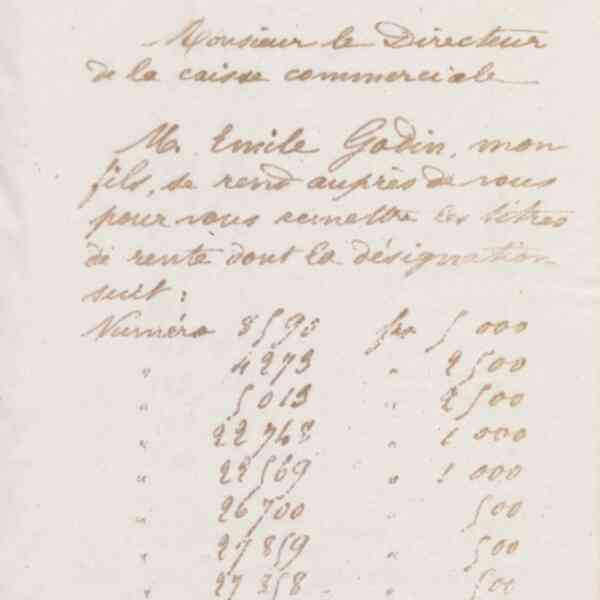 Monsieur le Directeur
de la caisse commerciale
Mr Emile Godin, mon
fils, se rend auprès de vous
pour vous remettre les titres
de rente dont la désignation
suit :
Numéro 8590 frs 5 000
" 4273 " 2 500
" 5013 " 2 500
" 22 748 " 1 000
" 22 569 " 1 000
" 26 700 500
" 27 859 " 500
" 27 358 " 500